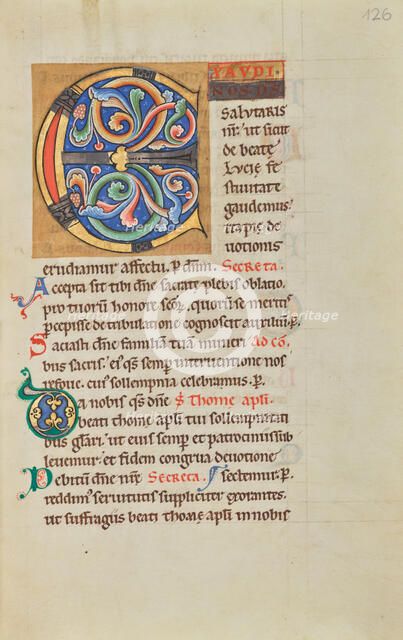 126
EXAVDI
NOS DS
SALVTARIS
nr̄: ut sicut
de beate
Lucie fe
stiuitate
gaudemus:
ita pie de
uotionis
erudiamur affectu. p̄ dn̄m. Secreta.
Accepta sit tibi dn̄e sacrate plebis oblatio.
pro tuorū honore scōȝ. quorū se meritis
percepisse de tribulatione cognoscit auxiliū. P̄.
Saciasti dn̄e familiā tuā munerī Ad cō.
bus sacris. eiꝰ qs̄ semp̄ interuentione nos
refoue. cuiꝰ sollempnia celebramus. P̄.
Da nobis qs̄ dn̄e S̄ Thome apl̄i.
beati thome apl̄i tui sollempnitati
bus gl̄ari. ut eius semp̄ et patrociniis sub
leuemur. et fidem congrua deuotione
Debitū dn̄e nr̄e Secreta. sectemur. P̄.
reddimꝰ seruitutis suppliciter exorantes.
ut suffragiis beati thome apl̄i in nobis
Heritage
Heritage
Heritage
Heritage